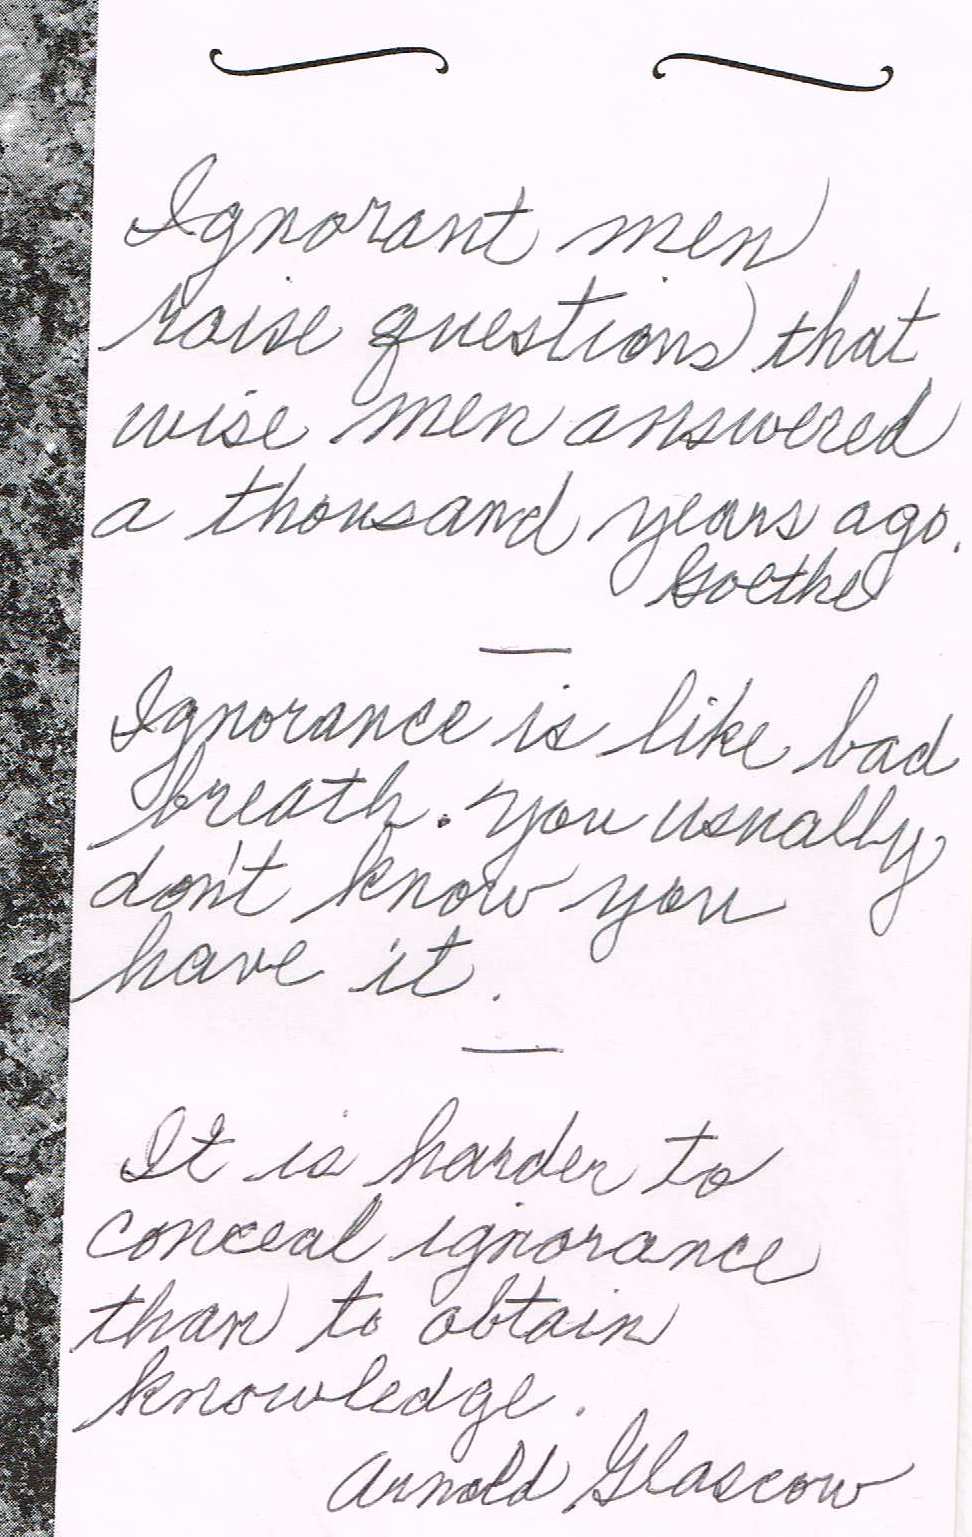 Ignorant men
raise questions that
wise men answered
a thousand years ago.
Goethe
Ignorance is like bad
breath. You usually
don't know you
have it.
It is harder to
conceal ignorance
than to obtain
knowledge.
Arnold Glascow